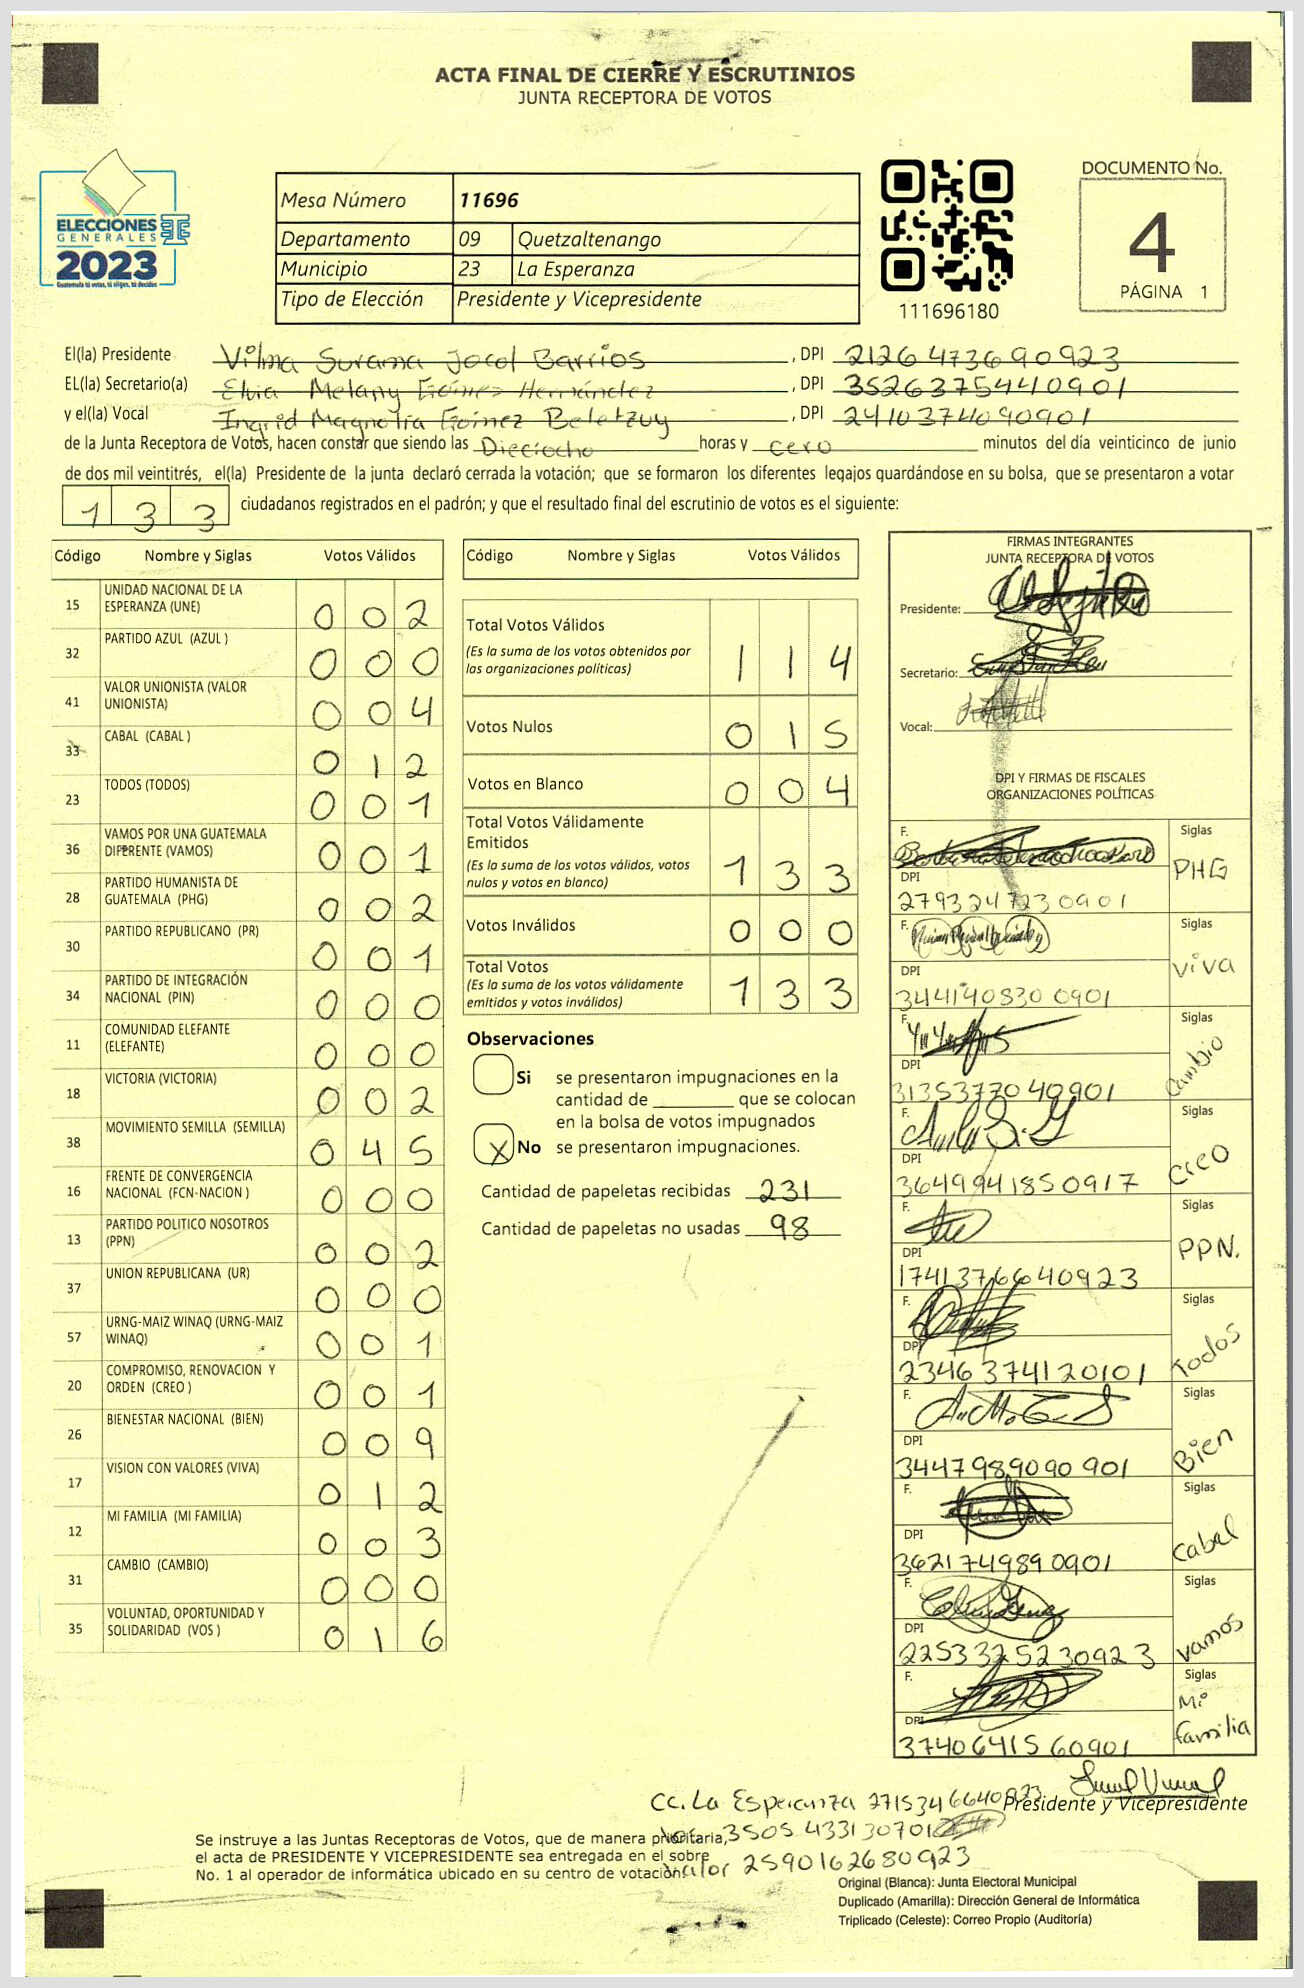 ACTA FINAL DE CIERRE Y ESCRUTINIOS
JUNTA RECEPTORA DE VOTOS
ELECCIONES
GENERALES
2023
Guatemala tú votas, tú eliges, tú decides
Mesa Número 11696
Departamento 09 Quetzaltenango
Municipio 23 La Esperanza
Tipo de Elección Presidente y Vicepresidente
111696180
DOCUMENTO No.
4
PÁGINA 1
El(la) Presidente Vilma Surama Jocol Barrios , DPI 2126473690923
EL(la) Secretario(a) Elvia Melany Gómez Hernández , DPI 3526375440901
y el(la) Vocal Ingrid Magnolia Gómez Beletzuy , DPI 2410374090901
de la Junta Receptora de Votos, hacen constar que siendo las Dieciocho horas y cero minutos del día veinticinco de junio
de dos mil veintitrés, el(la) Presidente de la junta declaró cerrada la votación; que se formaron los diferentes legajos guardándose en su bolsa, que se presentaron a votar
133 ciudadanos registrados en el padrón; y que el resultado final del escrutinio de votos es el siguiente:
Código Nombre y Siglas Votos Válidos
15 UNIDAD NACIONAL DE LA ESPERANZA (UNE) 002
32 PARTIDO AZUL (AZUL ) 000
41 VALOR UNIONISTA (VALOR UNIONISTA) 004
33 CABAL (CABAL ) 012
23 TODOS (TODOS) 001
36 VAMOS POR UNA GUATEMALA DIFERENTE (VAMOS) 001
28 PARTIDO HUMANISTA DE GUATEMALA (PHG) 002
30 PARTIDO REPUBLICANO (PR) 001
34 PARTIDO DE INTEGRACIÓN NACIONAL (PIN) 000
11 COMUNIDAD ELEFANTE (ELEFANTE) 000
18 VICTORIA (VICTORIA) 002
38 MOVIMIENTO SEMILLA (SEMILLA) 045
16 FRENTE DE CONVERGENCIA NACIONAL (FCN-NACION ) 000
13 PARTIDO POLITICO NOSOTROS (PPN) 002
37 UNION REPUBLICANA (UR) 000
57 URNG-MAIZ WINAQ (URNG-MAIZ WINAQ) 001
20 COMPROMISO, RENOVACION Y ORDEN (CREO ) 001
26 BIENESTAR NACIONAL (BIEN) 009
17 VISION CON VALORES (VIVA) 012
12 MI FAMILIA (MI FAMILIA) 003
31 CAMBIO (CAMBIO) 000
35 VOLUNTAD, OPORTUNIDAD Y SOLIDARIDAD (VOS ) 016
Código Nombre y Siglas Votos Válidos
Total Votos Válidos
(Es la suma de los votos obtenidos por las organizaciones políticas) 114
Votos Nulos 015
Votos en Blanco 004
Total Votos Válidamente Emitidos
(Es la suma de los votos válidos, votos nulos y votos en blanco) 133
Votos Inválidos 000
Total Votos
(Es la suma de los votos válidamente emitidos y votos inválidos) 133
Observaciones
Si se presentaron impugnaciones en la
cantidad de que se colocan
en la bolsa de votos impugnados
X No se presentaron impugnaciones.
Cantidad de papeletas recibidas 231
Cantidad de papeletas no usadas 98
FIRMAS INTEGRANTES
JUNTA RECEPTORA DE VOTOS
Presidente:
Secretario:
Vocal:
DPI Y FIRMAS DE FISCALES
ORGANIZACIONES POLÍTICAS
F. Siglas PHG
DPI 2793247230901
F. Siglas viva
DPI 3441408300901
F. Siglas Cambio
DPI 3135377040901
F. Siglas Creo
DPI 3649941850917
F. Siglas PPN.
DPI 1741376640923
F. Siglas Todos
DPI 2346374120101
F. Siglas Bien
DPI 3447989090901
F. Siglas Cabal
DPI 3621749890901
F. Siglas Vamos
DPI 2253325230923
F. Siglas Mi familia
DPI 3740641560901
CC. La Esperanza 2715346640923
Presidente y Vicepresidente
3505433130701
Valor 2590162680923
Se instruye a las Juntas Receptoras de Votos, que de manera prioritaria,
el acta de PRESIDENTE Y VICEPRESIDENTE sea entregada en el sobre
No. 1 al operador de informática ubicado en su centro de votación.
Original (Blanca): Junta Electoral Municipal
Duplicado (Amarilla): Dirección General de Informática
Triplicado (Celeste): Correo Propio (Auditoría)